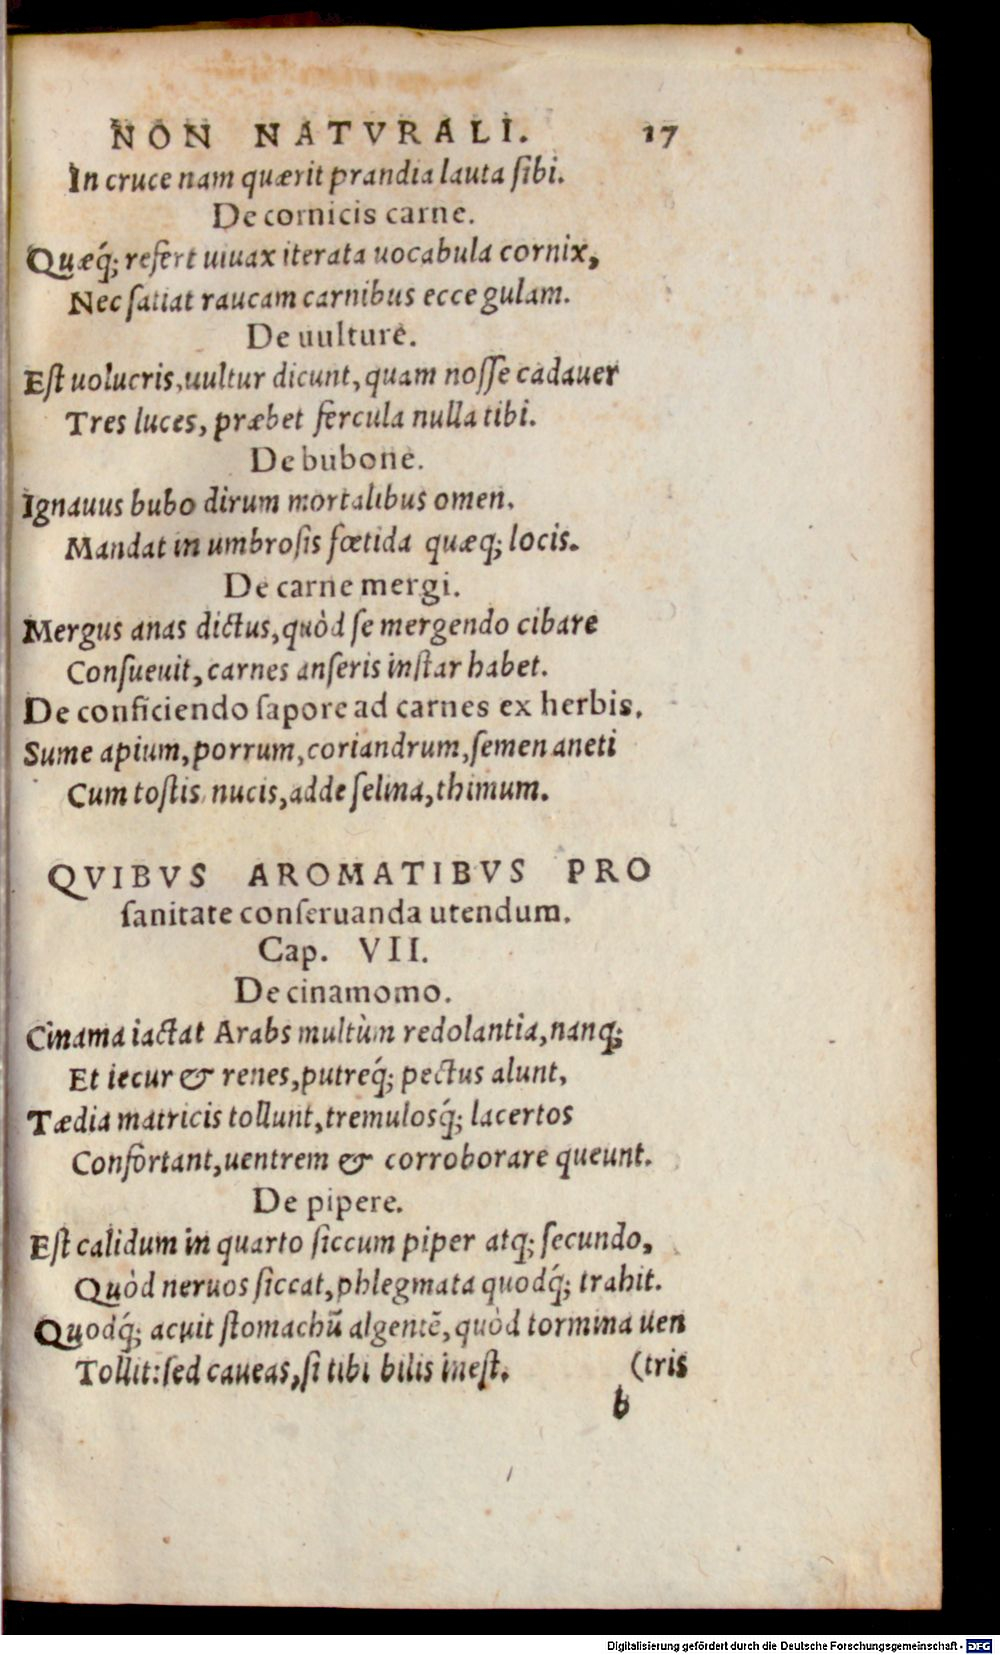 NON NATVRALI. 17
In cruce nam quærit prandia lauta ſibi.
De cornicis carne.
Quæq́; refert uiuax iterata uocabula cornix,
Nec ſatiat raucam carnibus ecce gulam.
De uulture.
Eſt uolucris, uultur dicunt, quam noſſe cadauer
Tres luces, præbet fercula nulla tibi.
De bubone.
Ignauus bubo dirum mortalibus omen.
Mandat in umbroſis fœtida quæq; locis.
De carne mergi.
Mergus anas dictus, quòd ſe mergendo cibare
Conſueuit, carnes anſeris inſtar habet.
De conficiendo ſapore ad carnes ex herbis.
Sume apium, porrum, coriandrum, ſemen aneti
Cum toſtis nucis, adde ſelina, thimum.
QVIBVS AROMATIBVS PRO
ſanitate conſeruanda utendum.
Cap. VII.
De cinamomo.
Cinama iactat Arabs multùm redolantia, nanq;
Et iecur & renes, putreq́; pectus alunt,
Tædia matricis tollunt, tremulosq́; lacertos
Confortant, uentrem & corroborare queunt.
De pipere.
Eſt calidum in quarto ſiccum piper atq; ſecundo,
Quòd neruos ſiccat, phlegmata quodq́; trahit.
Quodq́; acuit ſtomachũ algentẽ, quòd tormina uen
Tollit: ſed caueas, ſi tibi bilis ineſt. (tris
b
Digitalisierung gefördert durch die Deutsche Forschungsgemeinschaft - DFG